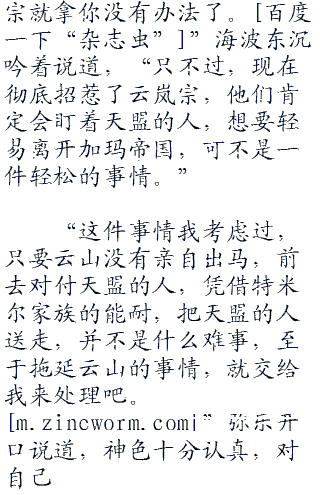 宗就拿你没有办法了。[百度
一下“杂志虫”]”海波东沉
吟着说道，“只不过，现在
彻底招惹了云岚宗，他们肯
定会盯着天盟的人，想要轻
易离开加玛帝国，可不是一
件轻松的事情。”
“这件事情我考虑过，
只要云山没有亲自出马，前
去对付天盟的人，凭借特米
尔家族的能耐，把天盟的人
送走，并不是什么难事，至
于拖延云山的事情，就交给
我来处理吧。
[m.zincworm.com]”弥东开
口说道，神色十分认真，对
自己